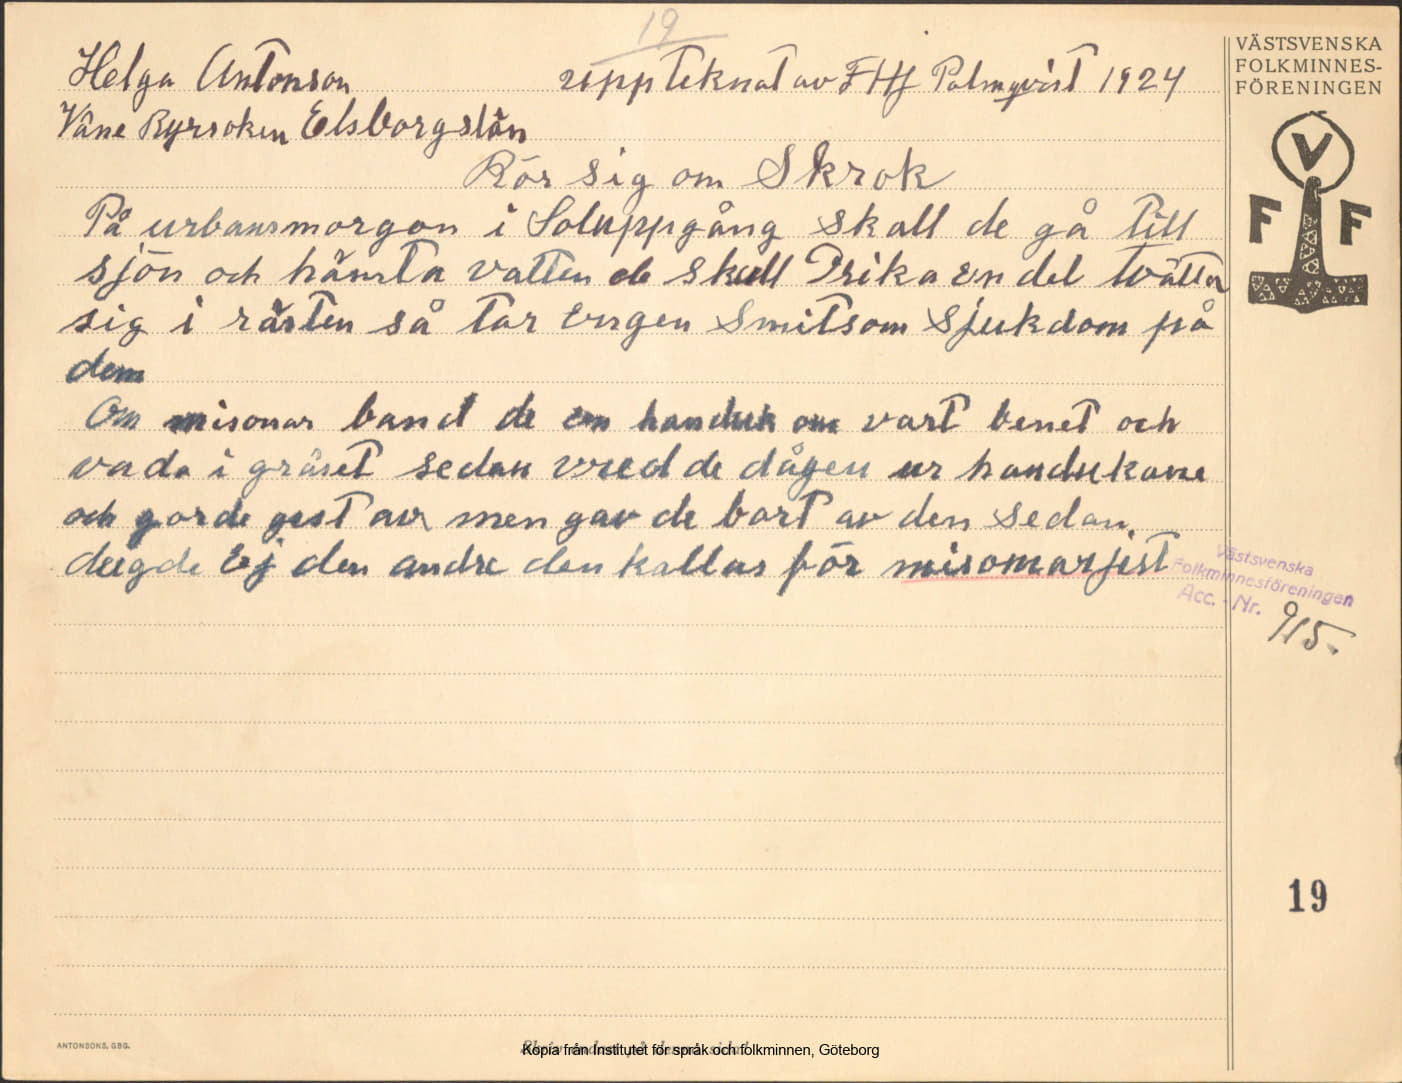 19
Helga Antonson uppteknat av FHj Palmqvist 1924
Våne Ryrsoken Elsborgslän
Rör sig om Skrok
På urbansmorgon i Soluppgång skall de gå till
sjön och hämta vatten skall en del tvätta
sig i så tar Engen Smitsom Sjukdom på
dem
Om misonar band de en handuk om vart benet och
vada i gräset sedan vred de dågen ur handukane
och gorde gest av men gav de bort av den sedan
dugde Ej den andre den kallas för misomarjist
VÄSTSVENSKA
FOLKMINNES-
FÖRENINGEN
V
F F
Västsvenska
Folkminnesföreningen
Acc. - Nr. 915.
19
ANTONSONS, GBG.
Kopia från Institutet för språk och folkminnen, Göteborg